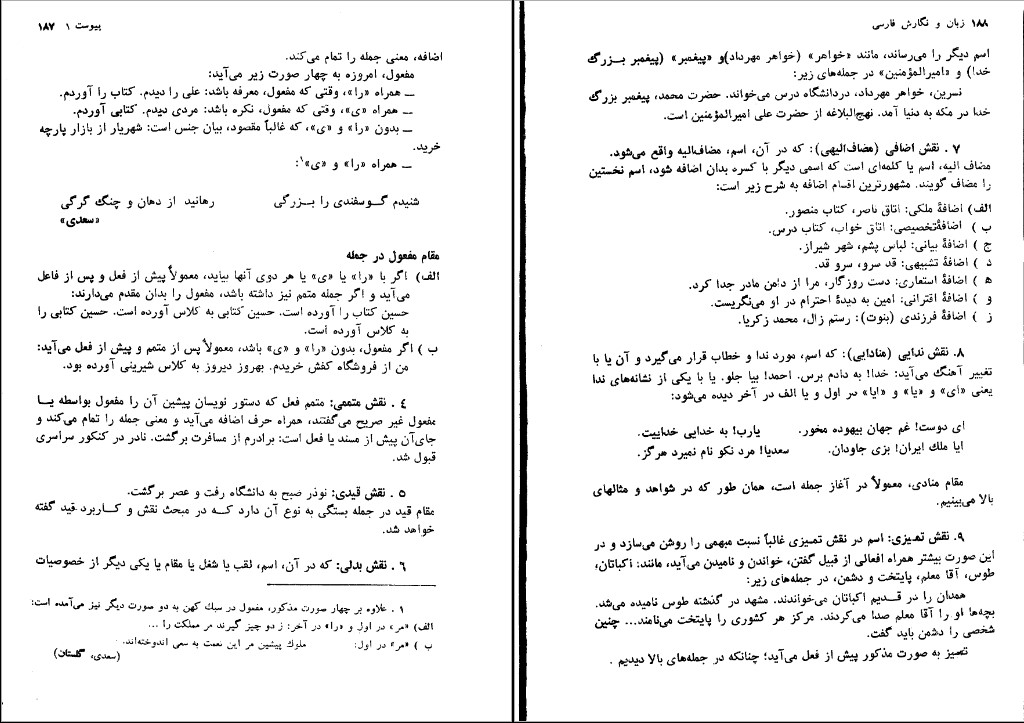 پیوست ۱   ۱۸۷
اضافه، معنی جمله را تمام می‌کند.
مفعول، امروزه به چهار صورت زیر می‌آید:
— همراه «را»، وقتی که مفعول، معرفه باشد: علی را دیدم. کتاب را آوردم.
— همراه «ی»، وقتی که مفعول، نکره باشد: مردی دیدم. کتابی آوردم.
— بدون «را» و «ی»، که غالباً مقصود، بیان جنس است: شهریار از بازار پارچه
خرید.
— همراه «را» و «ی»۱:
شنیدم گـوسفندی را بـزرگی   رهانید از دهان و چنگ گرگی
«سعدی»
مقام مفعول در جمله
الف) اگر با «را» یا «ی» یا هر دوی آنها بیاید، معمولاً پیش از فعل و پس از فاعل
می‌آید و اگر جمله متمم نیز داشته باشد، مفعول را بدان مقدم می‌دارند:
حسین کتاب را آورده است. حسین کتابی به کلاس آورده است. حسین کتابی را
به کلاس آورده است.
ب ) اگر مفعول، بدون «را» و «ی» باشد، معمولاً پس از متمم و پیش از فعل می‌آید:
من از فروشگاه کفش خریدم. بهروز دیروز به کلاس شیرینی آورده بود.
۴ . نقش متممی: متمم فعل که دستور نویسان پیشین آن را مفعول بواسطه یـا
مفعول غیر صریح می‌گفتند، همراه حرف اضافه می‌آید و معنی جمله را تمام می‌کند و
جای‌آن پیش از مسند یا فعل است: برادرم از مسافرت برگشت. نادر در کنکور سراسری
قبول شد.
۵ . نقش قیدی: نوذر صبح به دانشگاه رفت و عصر برگشت.
مقام قید در جمله بستگی به نوع آن دارد کـه در مبحث نقش و کـاربرد قید گفته
خواهد شد.
۶ . نقش بدلی: که در آن، اسم، لقب یا شغل یا مقام یا یکی دیگر از خصوصیات
۱ . علاوه بر چهار صورت مذکور، مفعول در سبك کهن به دو صورت دیگر نیز می‌آمده است:
الف) «مر» در اول و «را» در آخر: ز دو چیز گیرند مر مملکت را ...
ب ) «مر» در اول:   ملوك پیشین مر این نعمت به سعی اندوخته‌اند.
(سعدی، گلستان)
۱۸۸ زبان و نگارش فارسی
اسم دیگر را می‌رساند، مانند «خواهر» (خواهر مهرداد)و «پیغمبر» (پیغمبر بـزرگ
خدا) و «امیرالمؤمنین» در جمله‌های زیر:
نسرین، خواهر مهرداد، دردانشگاه درس می‌خواند. حضرت محمد، پیغمبر بزرگ
خدا در مکه به دنیا آمد. نهج‌البلاغه از حضرت علی امیرالمؤمنین است.
۷ . نقش اضافی (مضاف‌الیهی): که در آن، اسم، مضاف‌الیه واقع می‌شود.
مضاف الیه، اسم یا کلمه‌ای است که اسمی دیگر با کسره بدان اضافه شود، اسم نخستین
را مضاف گویند. مشهورترین اقسام اضافه به شرح زیر است:
الف) اضافهٔ ملکی: اتاق ناصر، کتاب منصور.
ب ) اضافهٔتخصیصی: اتاق خواب، کتاب درس.
ج ) اضافهٔ بیانی: لباس پشم، شهر شیراز.
د ) اضافهٔ تشبیهی: قد سرو، سرو قد.
ه ) اضافهٔ استعاری: دست روزگار، مرا از دامن مادر جدا کرد.
و ) اضافهٔ اقترانی: امین به دیدهٔ احترام در او می‌نگریست.
ز ) اضافهٔ فرزندی (بنوت): رستم زال، محمد زکریا.
۸. نقش ندایی (منادایی): که اسم، مورد ندا و خطاب قرار می‌گیرد و آن یا با
تغییر آهنگ می‌آید: خدا! به دادم برس. احمد! بیا جلو. یا با یکی از نشانه‌های ندا
یعنی «ای» و «یا» و «ایا» در اول و یا الف در آخر دیده می‌شود:
ای دوست! غم جهان بیهوده مخور.   یارب! به خدایی خداییت.
ایا ملك ایران! بزی جاودان.   سعدیا! مرد نکو نام نمیرد هرگز.
مقام منادی، معمولاً در آغاز جمله است، همان طور که در شواهد و مثالهای
بالا می‌بینیم.
۹. نقش تمیزی: اسم در نقش تمیزی غالباً نسبت مبهمی را روشن می‌سازد و در
این صورت بیشتر همراه افعالی از قبیل گفتن، خواندن و نامیدن می‌آید، مانند: اکباتان،
طوس، آقا معلم، پایتخت و دشمن، در جمله‌های زیر:
همدان را در قـدیم اکباتان می‌خواندند. مشهد در گذشته طوس نامیده می‌شد.
بچه‌ها او را آقا معلم صدا می‌کردند. مرکز هر کشوری را پایتخت می‌نامند... چنین
شخصی را دشمن باید گفت.
تمیز به صورت مذکور پیش از فعل می‌آید؛ چنانکه در جمله‌های بالا دیدیم .